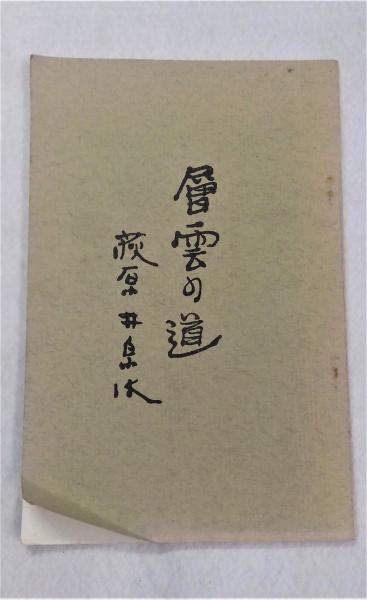 層雲の道
荻原井泉水